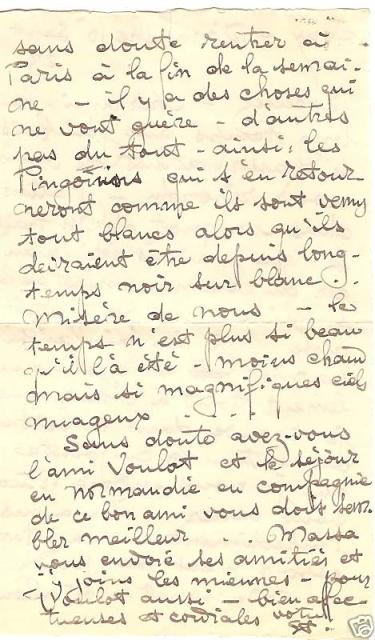 sans doute rentrer à
Paris à la fin de la semai-
ne - il y a des choses qui
ne vont guère - d'autres
pas du tout - ainsi : les
Pingouins qui s'en retour
neront comme ils sont venus
tout blancs alors qu'ils
devraient être depuis long-
temps noir sur blanc.
Misère de nous - le
temps n'est plus si beau
qu'il a été - moins chaud
mais si magnifiques ciels
nuageux . . .
Sans doute avez-vous
l'ami Voulot et le séjour
en Normandie en compagnie
de ce bon ami vous doit sem
bler meilleur . . Massa
vous envoie ses amitiés et
j'y joins les miennes - pour
Voulot aussi - bien affec-
tueuses et cordiales votre